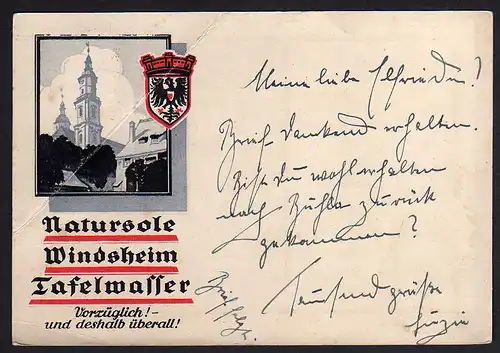 Natursole
Windsheim
Tafelwasser
Vorzüglich! –
und deshalb überall!
Meine liebe Elfriede!
Brief dankend erhalten.
Bist Du wohl erhalten
nach Ruhla zurück
gekommen?
Tausend Grüße
Brief folgt